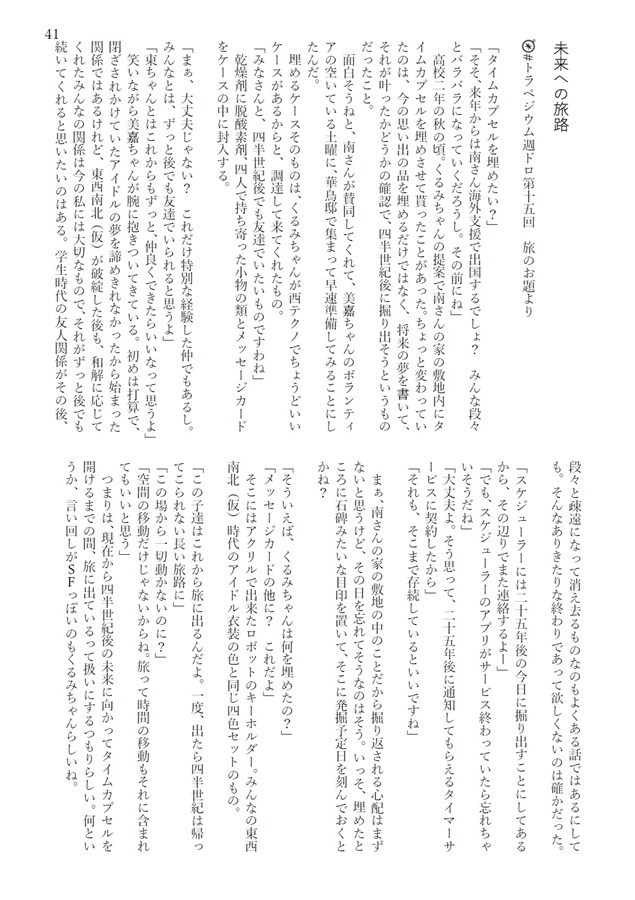 41
未来への旅路
#トラペジウム週ドロ第十五回　旅のお題より
「タイムカプセルを埋めたい？」
「そそ、来年からは南さん海外支援で出国するでしょ？　みんな段々
とバラバラになっていくだろうし。その前にね」
　高校二年の秋の頃。くるみちゃんの提案で南さんの家の敷地内にタ
イムカプセルを埋めさせて貰ったことがあった。ちょっと変わってい
たのは、今の思い出の品を埋めるだけではなく、将来の夢を書いて、
それが叶ったかどうかの確認で、四半世紀後に掘り出そうというもの
だったこと。
　面白そうねと、南さんが賛同してくれて、美嘉ちゃんのボランティ
アの空いている土曜に、華鳥邸で集まって早速準備してみることにし
たんだ。
　埋めるケースそのものは、くるみちゃんが西テクノでちょうどいい
ケースがあるからと、調達して来てくれたもの。
「みなさんと、四半世紀後でも友達でいたいものですわね」
　乾燥剤に脱酸素剤、四人で持ち寄った小物の類とメッセージカード
をケースの中に封入する。
「まぁ、大丈夫じゃない？　これだけ特別な経験した仲でもあるし。
みんなとは、ずっと後でも友達でいられると思うよ」
「東ちゃんとはこれからもずっと、仲良くできたらいいなって思うよ」
　笑いながら美嘉ちゃんが腕に抱きついてきている。初めは打算で、
閉ざされかけていたアイドルの夢を諦めきれなかったから始まった
関係ではあるけれど、東西南北（仮）が破綻した後も、和解に応じて
くれたみんなの関係は今の私には大切なもので、それがずっと後でも
続いてくれると思いたいのはある。学生時代の友人関係がその後、
段々と疎遠になって消え去るものなのもよくある話ではあるにして
も。そんなありきたりな終わりであって欲しくないのは確かだった。
「スケジューラーには二十五年後の今日に掘り出すことにしてある
から、その辺りでまた連絡するよー」
「でも、スケジューラーのアプリがサービス終わっていたら忘れちゃ
いそうだね」
「大丈夫よ。そう思って、二十五年後に通知してもらえるタイマーサ
ービスに契約したから」
「それも、そこまで存続しているといいですね」
　まぁ、南さんの家の敷地の中のことだから掘り返される心配はまず
ないと思うけど、その日を忘れてそうなのはそう。いっそ、埋めたと
ころに石碑みたいな目印を置いて、そこに発掘予定日を刻んでおくと
かね？
「そういえば、くるみちゃんは何を埋めたの？」
「メッセージカードの他に？　これだよ」
　そこにはアクリルで出来たロボットのキーホルダー。みんなの東西
南北（仮）時代のアイドル衣装の色と同じ四色セットのもの。
「この子達はこれから旅に出るんだよ。一度、出たら四半世紀は帰っ
てこられない長い旅路に」
「この場から一切動かないのに？」
「空間の移動だけじゃないからね。旅って時間の移動もそれに含まれ
てもいいと思う」
　つまりは、現在から四半世紀後の未来に向かってタイムカプセルを
開けるまでの間、旅に出ているって扱いにするつもりらしい。何とい
うか、言い回しがＳＦっぽいのもくるみちゃんらしいね。